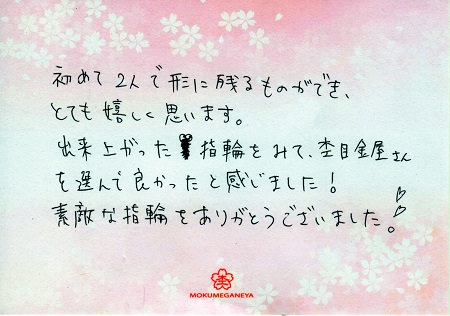 初めて2人で形に残るものができ、
とても嬉しく思います。
出来上がった指輪をみて、杢目金屋さん
を選んで良かったと感じました!
素敵な指輪をありがとうございました。
杢
MOKUMEGANEYA